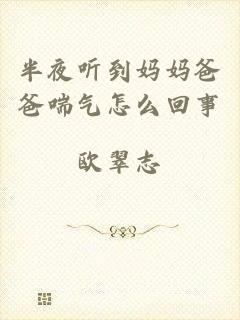 半夜听到妈妈爸
爸喘气怎么回事
欧翠志